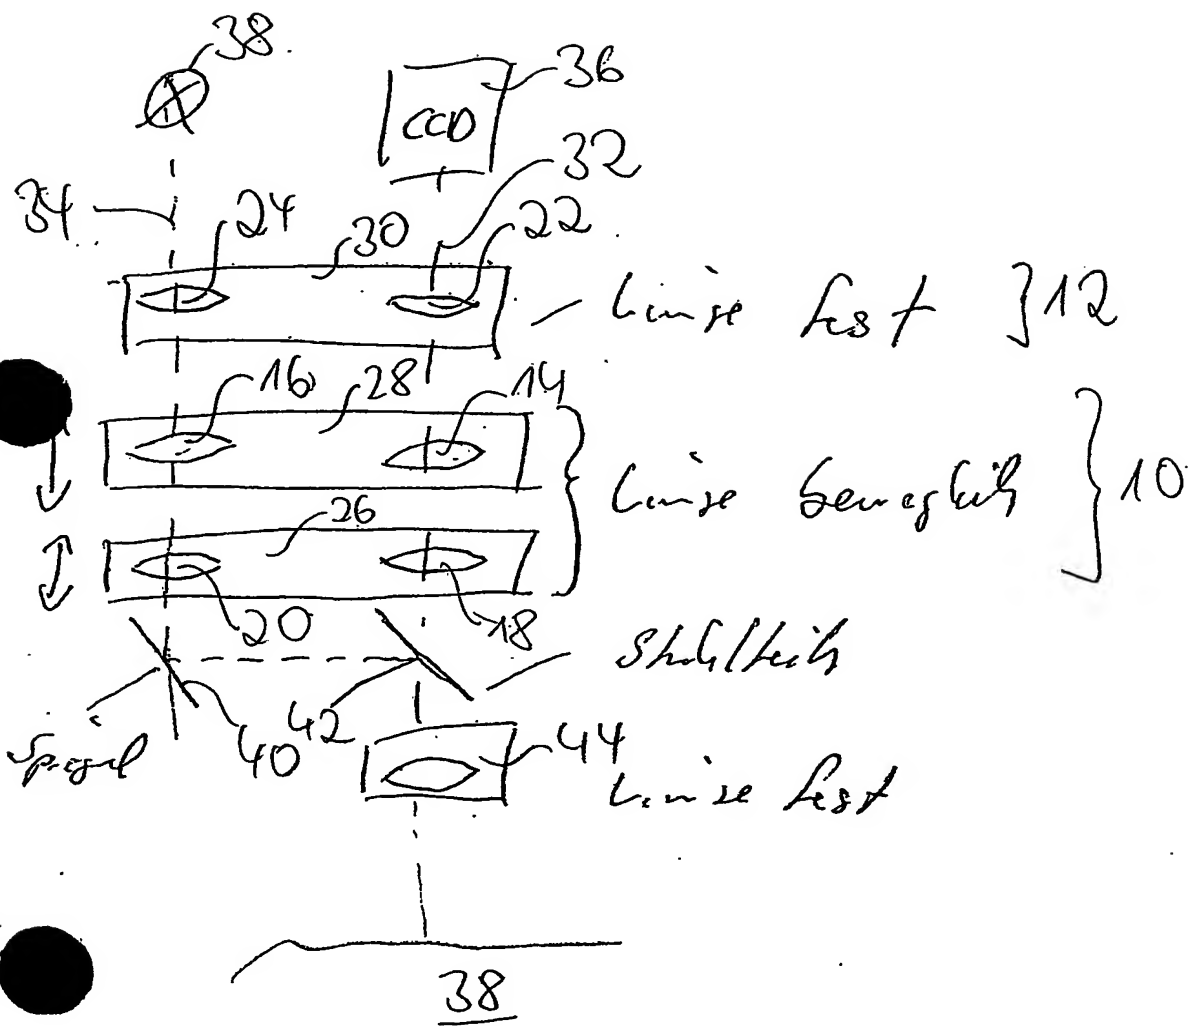 38
36
CCD
32
34
24
30
22
Linse fest } 12
16
28
14
Linse beweglich } 10
26
20
18
Strahlteiler
Spiegel
40
42
44
Linse fest
38